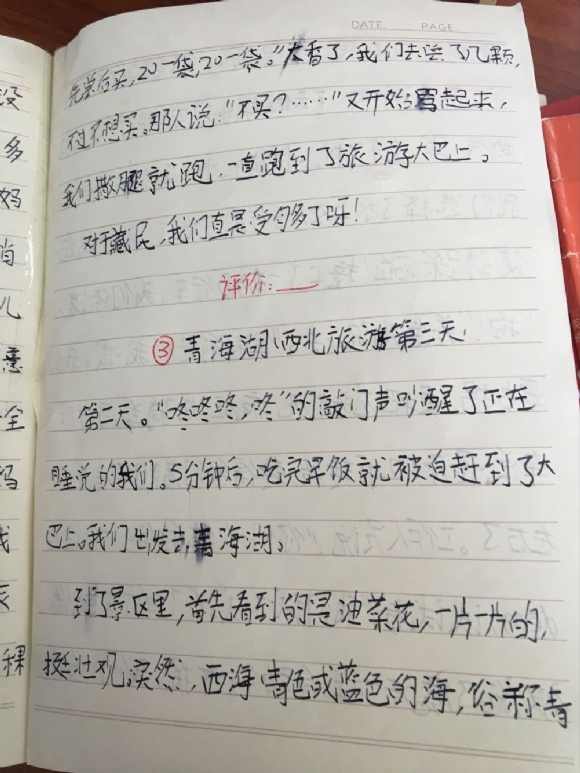 DATE. PAGE.
先尝后买,20一袋,20一袋。"太香了,我们去尝了几颗,
不过不想买。那人说:"不买?……"又开始骂起来,
我们撒腿就跑,一直跑到了旅游大巴上。
对于藏民,我们真是受够多了呀!
评价:
③ 青海湖(西北旅游第三天)
第二天。"咚咚咚,咚"的敲门声吵醒了正在
睡觉的我们。5分钟后,吃完早饭就被迫赶到了大
巴上。我们出发去青海湖。
到了景区里,首先看到的是油菜花,一片一片的,
挺壮观。突然,西海青色或蓝色的海,俗称青
没
多
妈
肖
儿
意
全
妈
戏
灰
稞